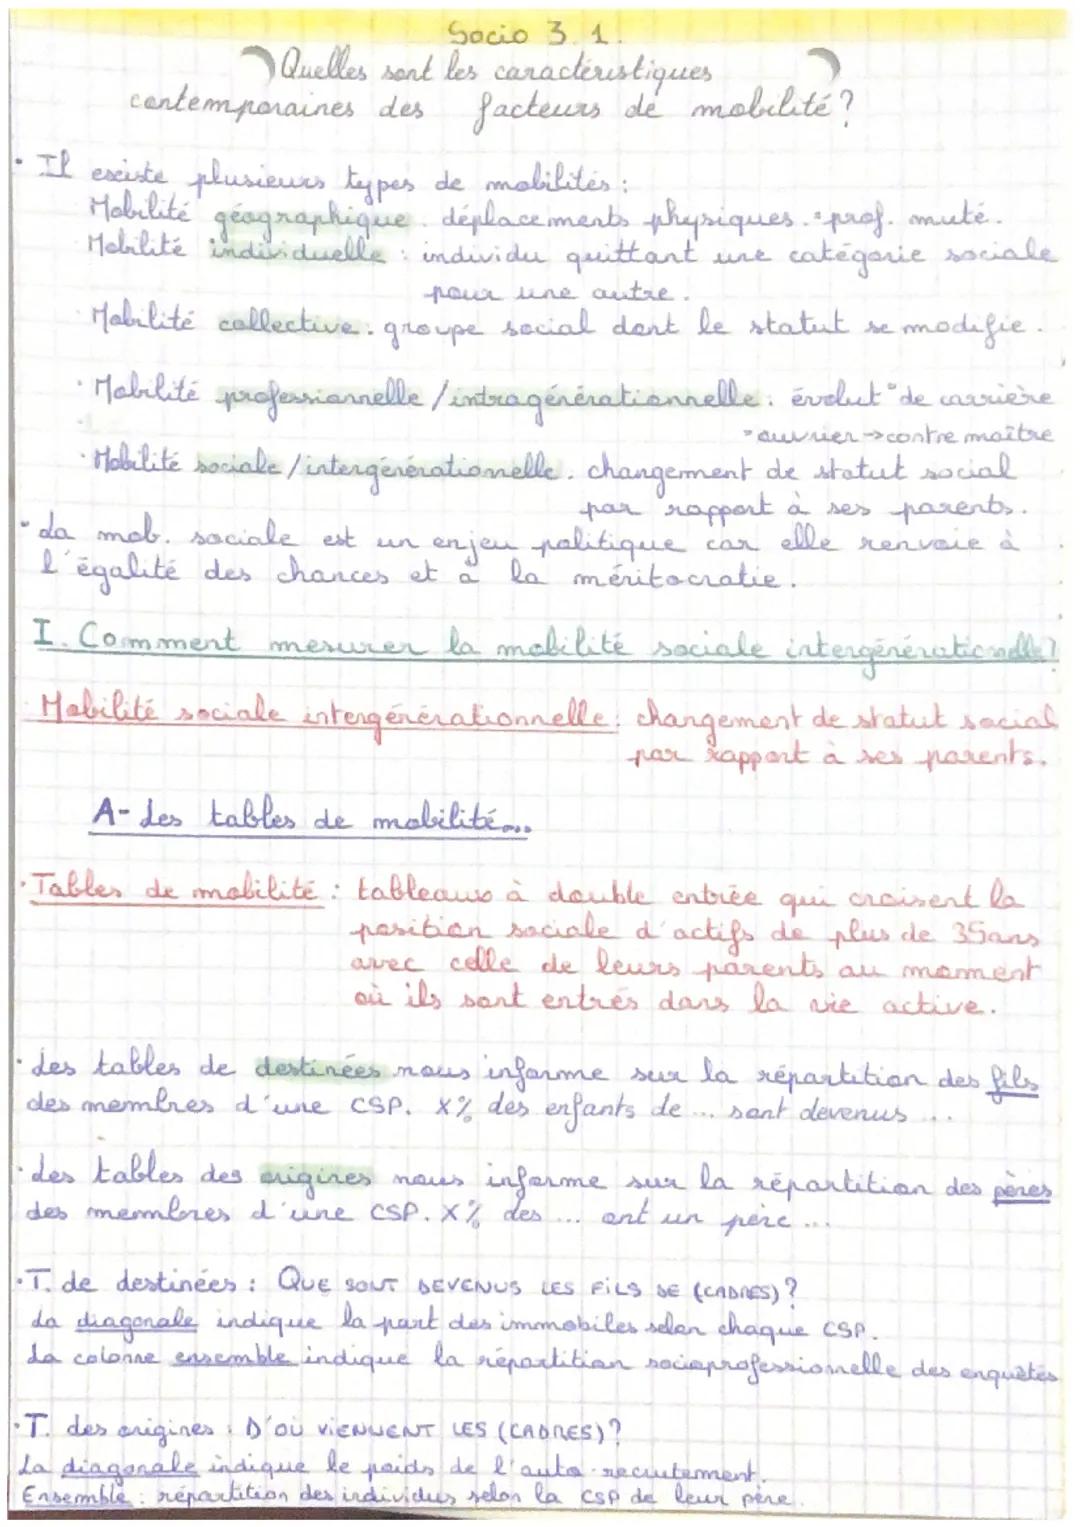 Socio 3.1.
Quelles sont les caractéristiques
contemporaines des facteurs de mobilité?
• Il existe plusieurs types de mobilités :
Mobilité géographique : déplacements physiques. • prof. muté.
Mobilité individuelle : individu quittant une catégorie sociale
pour une autre.
Mobilité collective : groupe social dont le statut se modifie.
• Mobilité professionnelle / intragénérationnelle : évolut° de carrière
• ouvrier → contre maître
• Mobilité sociale / intergénérationnelle : changement de statut social
par rapport à ses parents.
• La mob. sociale est un enjeu politique car elle renvoie à
l'égalité des chances et à la méritocratie.
I. Comment mesurer la mobilité sociale intergénérationnelle?
Mobilité sociale intergénérationnelle : changement de statut social
par rapport à ses parents.
A- Les tables de mobilité...
• Tables de mobilité : tableaux à double entrée qui croisent la
position sociale d'actifs de plus de 35ans
avec celle de leurs parents au moment
où ils sont entrés dans la vie active.
• Les tables de destinées nous informe sur la répartition des fils
des membres d'une CSP. X% des enfants de ... sont devenus ...
• Les tables des origines nous informe sur la répartition des pères
des membres d'une CSP. X% des ... ont un père ...
• T. de destinées : QUE SONT DEVENUS LES FILS DE (CADRES)?
La diagonale indique la part des immobiles selon chaque CSP.
La colonne ensemble indique la répartition socioprofessionnelle des enquêtés
• T. des origines : D'OÙ VIENNENT LES (CADRES)?
La diagonale indique le poids de l'auto-recrutement.
Ensemble : répartition des individus selon la CSP de leur père.